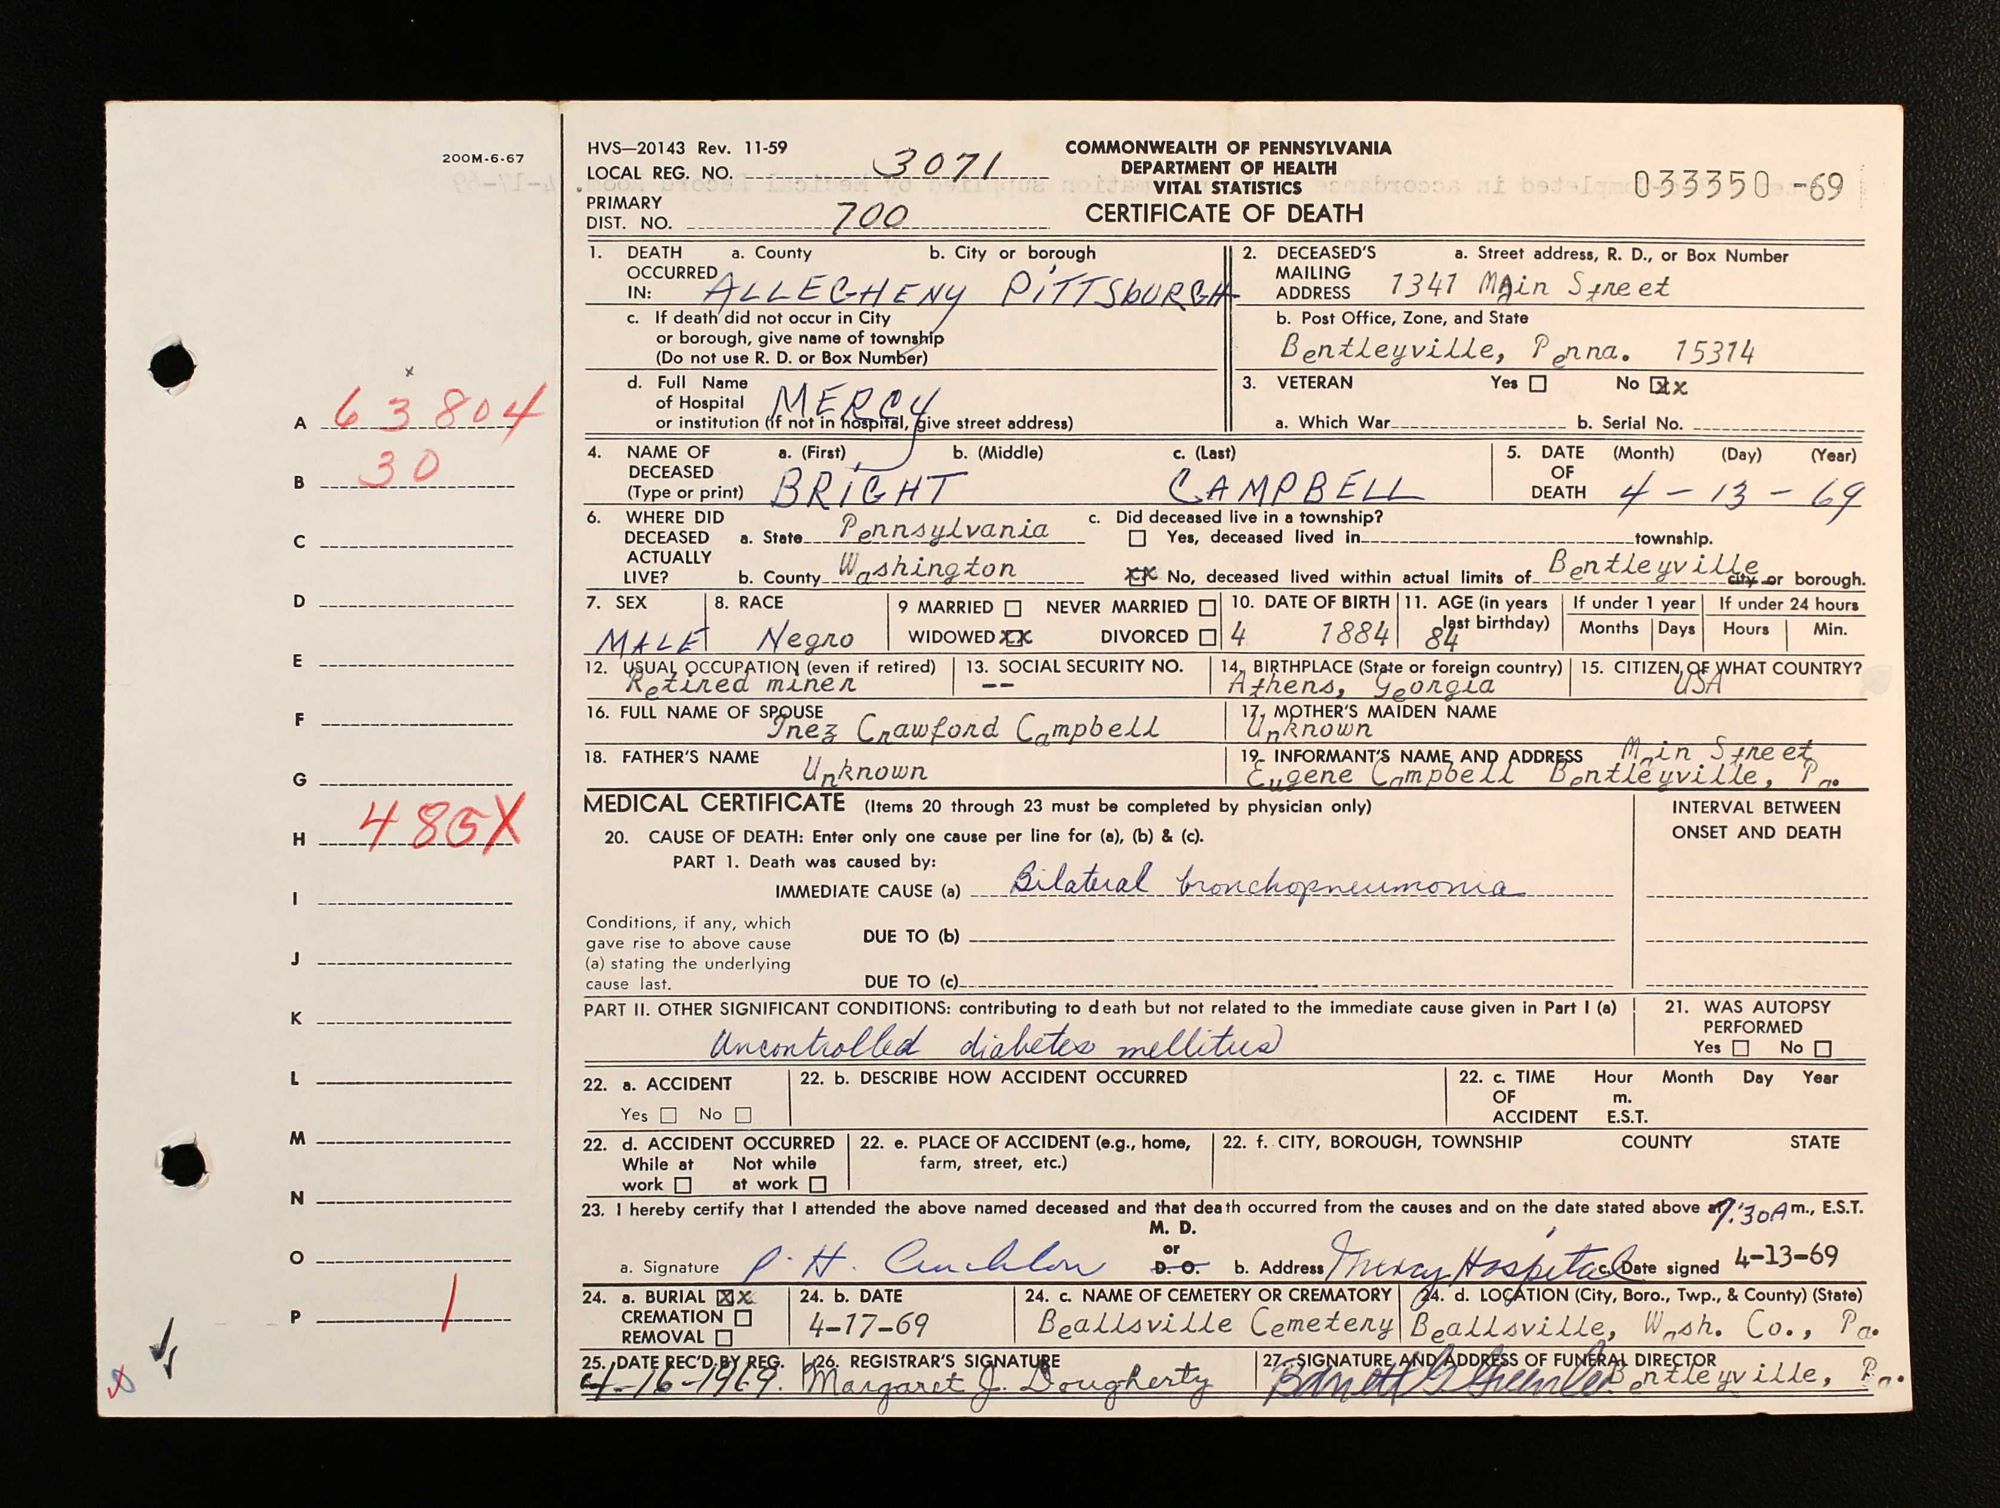 200M-6-67
HVS—20143 Rev. 11-59
LOCAL REG. NO. 3071
PRIMARY
DIST. NO. 700
COMMONWEALTH OF PENNSYLVANIA
DEPARTMENT OF HEALTH
VITAL STATISTICS
CERTIFICATE OF DEATH
033350 -69
1. DEATH OCCURRED IN: a. County b. City or borough
ALLEGHENY PITTSBURGH
c. If death did not occur in City
or borough, give name of township
(Do not use R. D. or Box Number)
d. Full Name
of Hospital MERCY
or institution (if not in hospital, give street address)
2. DECEASED'S MAILING ADDRESS a. Street address, R. D., or Box Number
1341 Main Street
b. Post Office, Zone, and State
Bentleyville, Penna. 15314
3. VETERAN Yes No XX
a. Which War b. Serial No.
4. NAME OF DECEASED (Type or print) a. (First) b. (Middle) c. (Last)
BRIGHT CAMPBELL
5. DATE OF DEATH (Month) (Day) (Year)
4 - 13 - 69
6. WHERE DID DECEASED ACTUALLY LIVE? a. State Pennsylvania
b. County Washington
c. Did deceased live in a township?
Yes, deceased lived in township.
XX No, deceased lived within actual limits of Bentleyville city or borough.
7. SEX MALE
8. RACE Negro
9 MARRIED NEVER MARRIED
WIDOWED XX DIVORCED
10. DATE OF BIRTH 4 1884
11. AGE (in years last birthday) 84
If under 1 year Months Days
If under 24 hours Hours Min.
12. USUAL OCCUPATION (even if retired)
Retired miner
13. SOCIAL SECURITY NO.
--
14. BIRTHPLACE (State or foreign country)
Athens, Georgia
15. CITIZEN OF WHAT COUNTRY?
USA
16. FULL NAME OF SPOUSE
Inez Crawford Campbell
17. MOTHER'S MAIDEN NAME
Unknown
18. FATHER'S NAME
Unknown
19. INFORMANT'S NAME AND ADDRESS Main Street
Eugene Campbell Bentleyville, Pa.
MEDICAL CERTIFICATE (Items 20 through 23 must be completed by physician only)
INTERVAL BETWEEN
ONSET AND DEATH
20. CAUSE OF DEATH: Enter only one cause per line for (a), (b) & (c).
PART 1. Death was caused by:
IMMEDIATE CAUSE (a) Bilateral bronchopneumonia
Conditions, if any, which
gave rise to above cause
(a) stating the underlying
cause last.
DUE TO (b)
DUE TO (c)
PART II. OTHER SIGNIFICANT CONDITIONS: contributing to death but not related to the immediate cause given in Part I (a)
Uncontrolled diabetes mellitus
21. WAS AUTOPSY
PERFORMED
Yes No
22. a. ACCIDENT
Yes No
22. b. DESCRIBE HOW ACCIDENT OCCURRED
22. c. TIME OF ACCIDENT Hour Month Day Year
m.
E.S.T.
22. d. ACCIDENT OCCURRED
While at work Not while at work
22. e. PLACE OF ACCIDENT (e.g., home,
farm, street, etc.)
22. f. CITY, BOROUGH, TOWNSHIP COUNTY STATE
23. I hereby certify that I attended the above named deceased and that death occurred from the causes and on the date stated above at 7:30A m., E.S.T.
a. Signature P. H. M. D. or D. O. b. Address Mercy Hospital c. Date signed 4-13-69
24. a. BURIAL XX
CREMATION
REMOVAL
24. b. DATE
4-17-69
24. c. NAME OF CEMETERY OR CREMATORY
Beallsville Cemetery
24. d. LOCATION (City, Boro., Twp., & County) (State)
Beallsville, Wash. Co., Pa.
25. DATE REC'D BY REG.
4-16-1969.
26. REGISTRAR'S SIGNATURE
Margaret J. Dougherty
27. SIGNATURE AND ADDRESS OF FUNERAL DIRECTOR
Bentleyville, Pa.
x
A 63804
B 30
C
D
E
F
G
H 485X
I
J
K
L
M
N
O
P 1